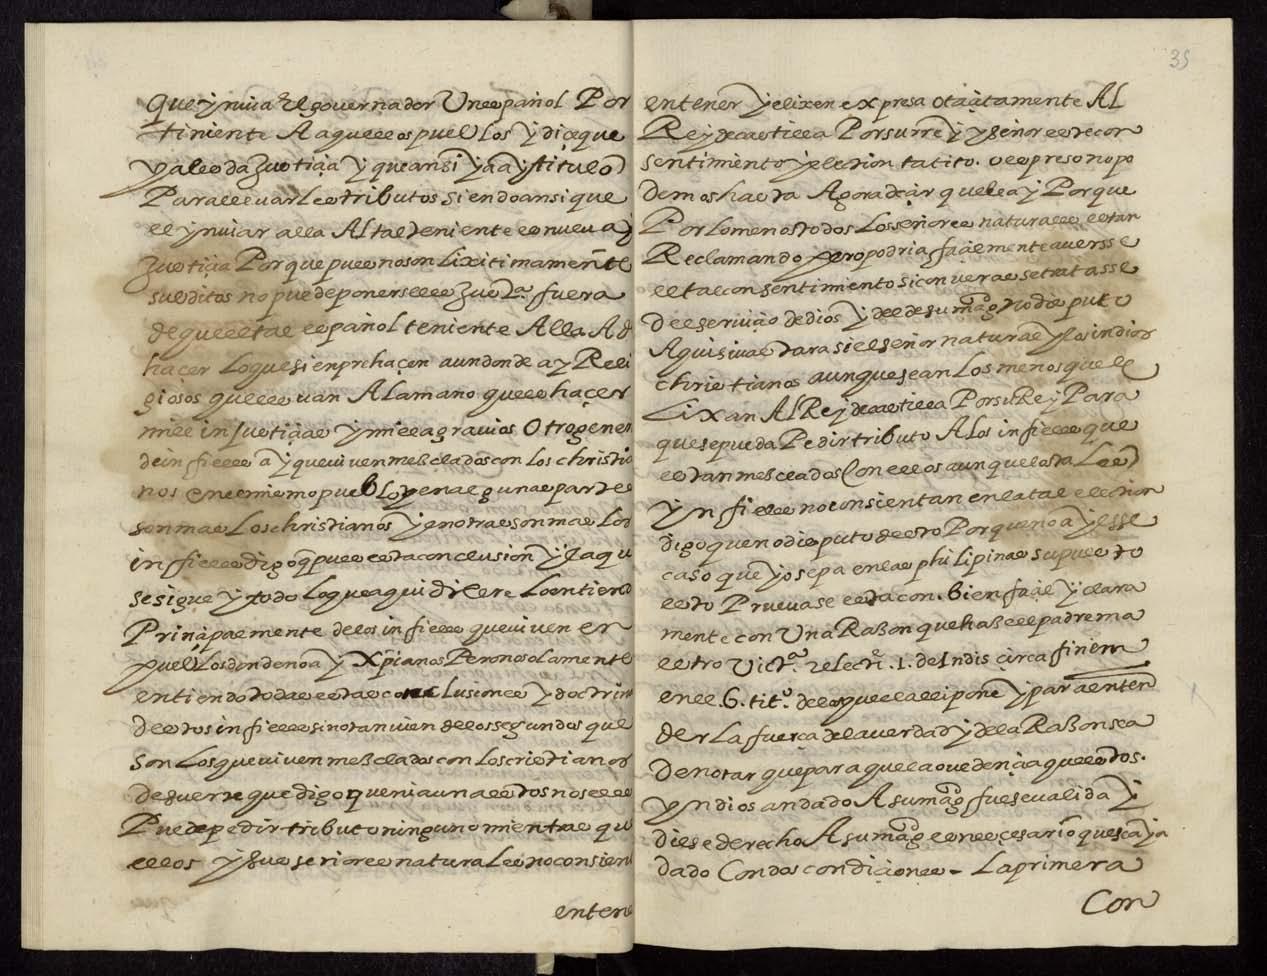 que ynuia el gouernador Un español Por
tiniente A aquellos pueblos y diçe que
va les da Justiçia y que ansi ya ay titulo
Para lleuarles tributos siendo ansi que
el ynuiar alla Al tal teniente es nueua yn
Justiçia Porque pues no son lixitimamente
subditos no puede ponerseles Justa. fuera
de que el tal español teniente Alla A de
haçer lo que sienpre haçen aun donde ay Reli
giosos que les uan A la mano que es haçer
mill injustiçias y mill agrauios Otro genero
de infieles ay que viuen mesclados con los christia
nos en el mismo pueblo y en algunas partes
son mas Los christianos y en otras son mas Los
infieles digo q pues esta conclusion y la que
se sigue y todo lo que aqui dixere Lo entiendo
Prinçipalmente de los infieles que viuen en
pueblos donde no ay Xpianos Pero no solamente
entiendo todas estas conclusiones y doctrina
destos infieles sino tanuien de los segundos que
son Los que viuen mesclados con Los cristianos
de suerte que digo que ni aun a estos no se les
Puede pedir tributo ninguno mientras que
ellos y sus señores naturales no consien
enten
35
en tener y elixen expresa o taçitamente Al
Rey de castilla Por su rre y y señor este con
sentimiento y eleçion taçito. o espreso no po
demos hasta Agora deçir que le ay Porque
Por lo menos todos Los señores naturales estan
Reclamando pero podria façilmente auersse
este consentimiento si con veras se tratasse
del seruiçio de dios y del de su magd no disputo
Aqui si uastara si el señor natural y los indios
christianos aunque sean Los menos que eli
xan Al Rey de castilla Por su Rey Para
que se pueda Pedir tributo A los infieles que
estan mesclados Con ellos aunque los tales
ynfieles no consientan en la tal election
digo que no disputo desto Porque no ay esse
caso que yo sepa en las philipinas supuesto
esto Prueuase esta con. bien façil y clara
mente con Una Rason que hase el padre ma
estro Victa. relectr. 1. de Indis çirca finem
en el 6. titº. de los que el alli pone y para enten
der La fuerça de la verdad y de la Rason se a
De notar que para que la ouedençia que estos.
yndios an dado A su magd fuese valida y
diese derecho A su magd es neçesario que se aya
dado Con dos condiçiones - La primera
Con